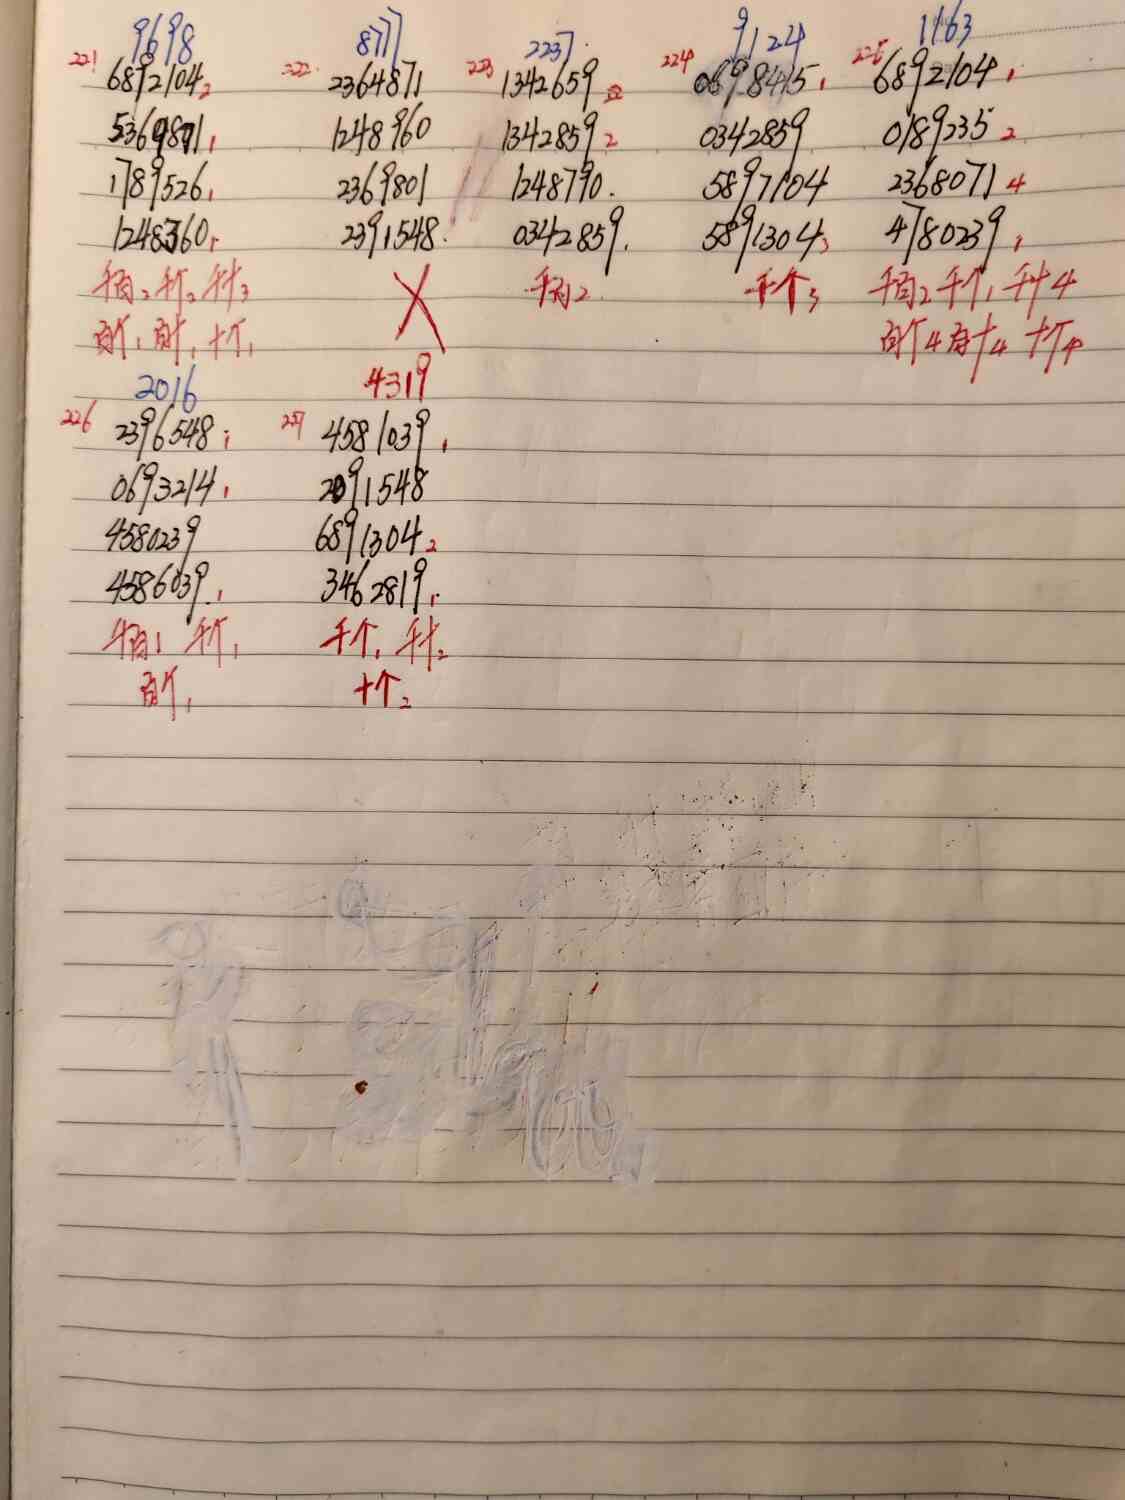 9698 8777 2237. 9124 1163
221 6892104 2 222. 2364871 223 1342659 224 0698415 1 225 6892104 1
5369801 1 1248960 1342859 2 0342859 0189235 2
1789526 1 2369801 1248790. 5897104 2368071 4
1248360 1 2391548. 0342859. 5891304 3 4780239 1
千百2 千个2 千十3 千百2 千个3 千百2 千个1 千十4
百个1 百十1 十个1 百个4 百十4 十个4
2016 4319
226 2396548 1 227 4581039 1
0693214 1 2091548
4580239 6891304 2
4586039 1 3462819 1
千百1 千个1 千个1 千十2
百个1 十个2